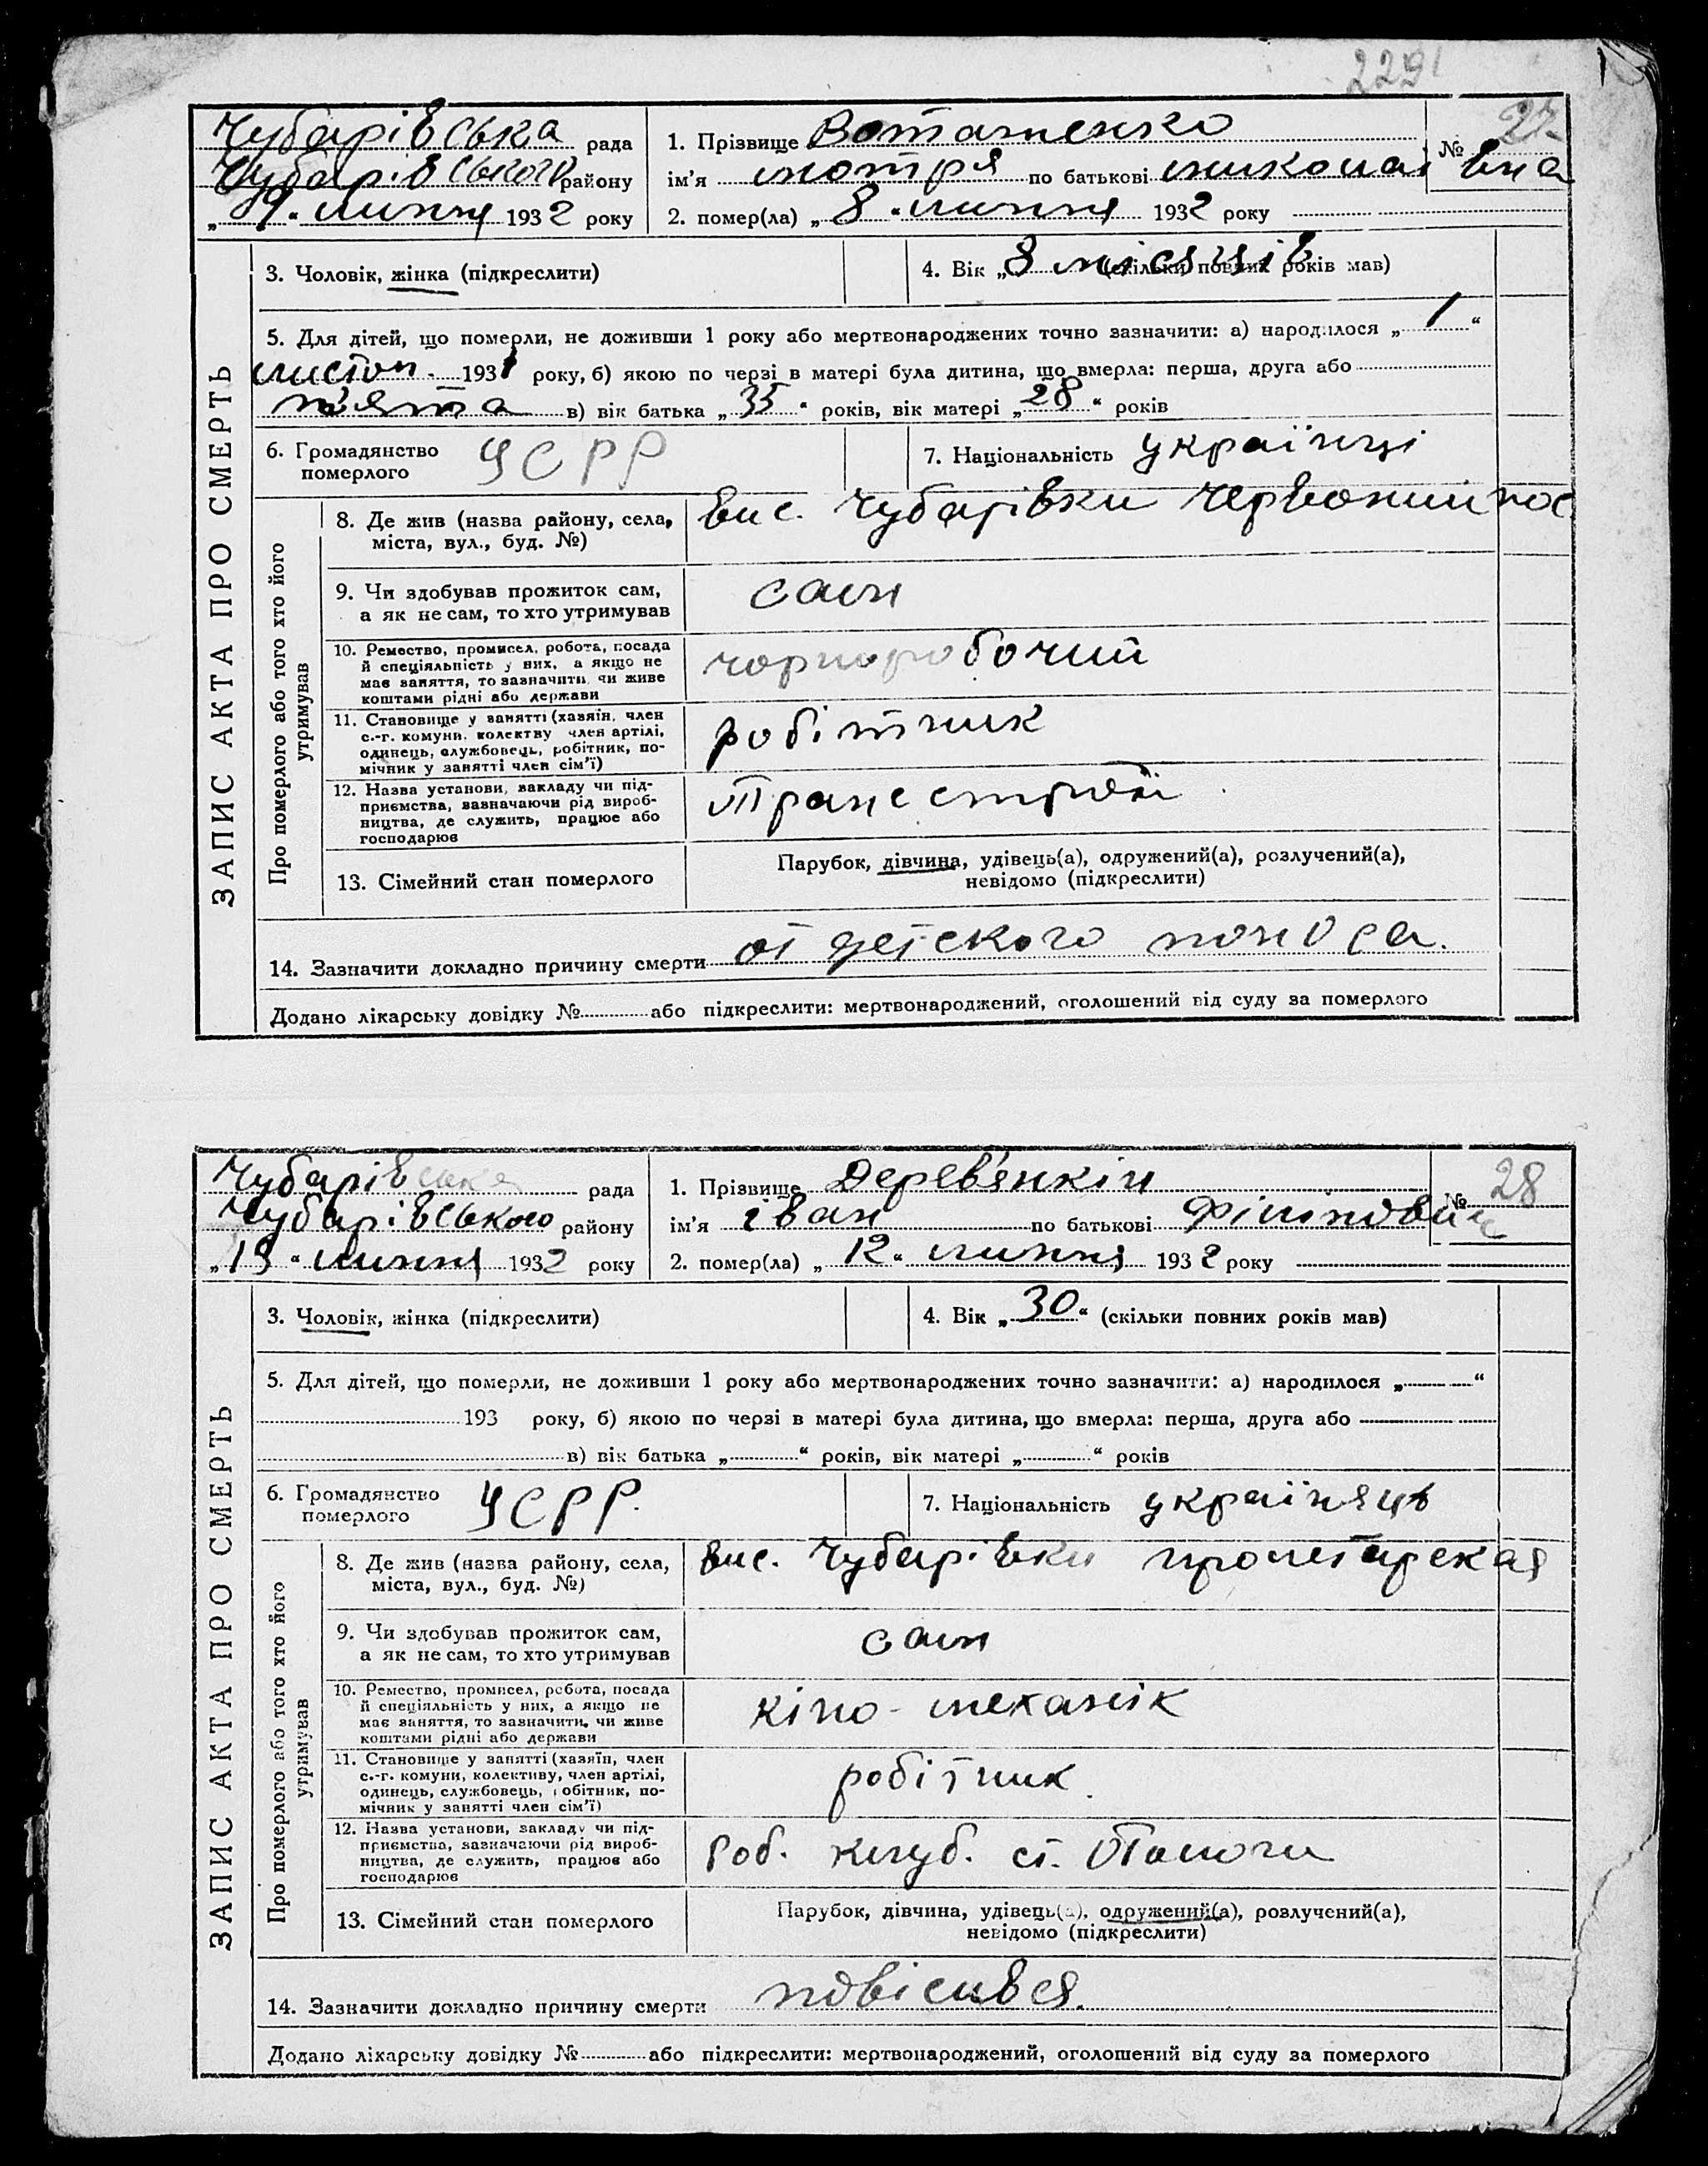 229
Чубарівська рада
Чубарівського району
„9“ липня 1932 року
1. Прізвище Воташенко
№ 27
ім’я мотря по батькові миколаївна
2. помер(ла) „8“ липня 1932 року
ЗАПИС АКТА ПРО СМЕРТЬ
3. Чоловік, жінка (підкреслити)
4. Вік „8 місяців (скільки повних років мав)
5. Для дітей, що померли, не доживши 1 року або мертвонароджених точно зазначити: а) народилося „1“
листоп. 1931 року, б) якою по черзі в матері була дитина, що вмерла: перша, друга або
п'ята в) вік батька „35“ років, вік матері „28“ років
6. Громадянство
померлого
УСРР
7. Національність українці
Про померлого або того хто його
утримував
8. Де жив (назва району, села,
міста, вул., буд. №)
вис. Чубарівки Червоний пос
9. Чи здобував прожиток сам,
а як не сам, то хто утримував
сам
10. Ремество, промисел, робота, посада
й спеціяльність у них, а якщо не
має заняття, то зазначити, чи живе
коштами рідні або держави
чорноробочий
11. Становище у занятті (хазяїн, член
с.-г. комуни, колектву член артілі,
одинець, службовець, робітник, по-
мічник у занятті член сім’ї)
робітник
12. Назва установи, закладу чи під-
приємства, зазначаючи рід вироб-
ництва, де служить, працює або
господарює
Трансстрой
13. Сімейний стан померлого
Парубок, дівчина, удівець(а), одружений(а), розлучений(а),
невідомо (підкреслити)
14. Зазначити докладно причину смерти от детского поноса.
Додано лікарську довідку № або підкреслити: мертвонароджений, оголошений від суду за померлого
Чубарівська рада
Чубарівського району
„13“ липня 1932 року
1. Прізвище Дерев'янкін
№ 28
ім’я іван по батькові Філіпович
2. помер(ла) „12“ липня 1932 року
ЗАПИС АКТА ПРО СМЕРТЬ
3. Чоловік, жінка (підкреслити)
4. Вік „30“ (скільки повних років мав)
5. Для дітей, що померли, не доживши 1 року або мертвонароджених точно зазначити: а) народилося „ “
193 року, б) якою по черзі в матері була дитина, що вмерла: перша, друга або
в) вік батька „ “ років, вік матері „ “ років
6. Громадянство
померлого
УСРР.
7. Національність україняць
Про померлого або того хто його
утримував
8. Де жив (назва району, села,
міста, вул., буд. №)
вис. Чубарівки пролетарская
9. Чи здобував прожиток сам,
а як не сам, то хто утримував
сам
10. Ремество, промисел, робота, посада
й спеціяльність у них, а якщо не
має заняття, то зазначити, чи живе
коштами рідні або держави
кіно-механік
11. Становище у занятті (хазяїн, член
с.-г. комуни, колективу, член артілі,
одинець, службовець, робітник, по-
мічник у занятті член сім’ї)
робітник
12. Назва установи, закладу чи під-
приємства, зазначаючи рід вироб-
ництва, де служить, працює або
господарює
Роб. клуб. ст. Пологи
13. Сімейний стан померлого
Парубок, дівчина, удівець(а), одружений(а), розлучений(а),
невідомо (підкреслити)
14. Зазначити докладно причину смерти повісився.
Додано лікарську довідку № або підкреслити: мертвонароджений, оголошений від суду за померлого